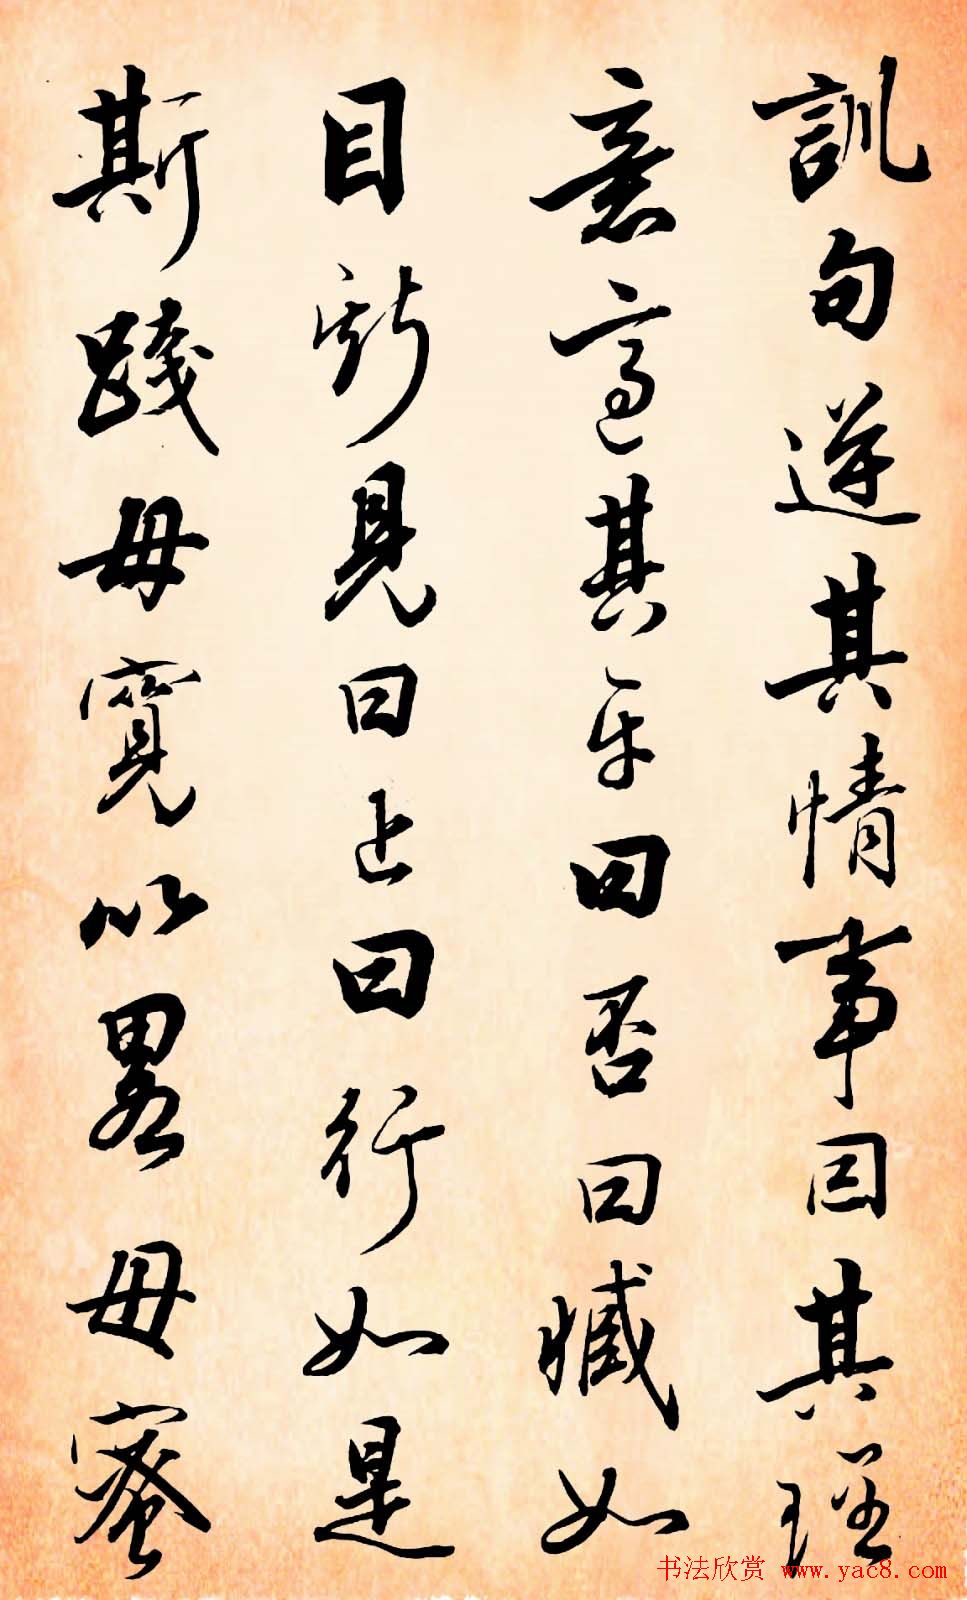 訓句逆其情事因其理
意適其平曰否曰臧如
目斯見曰止曰行如是
斯踐毋寬以畧毋蜜
书法欣赏 www.yac8.com